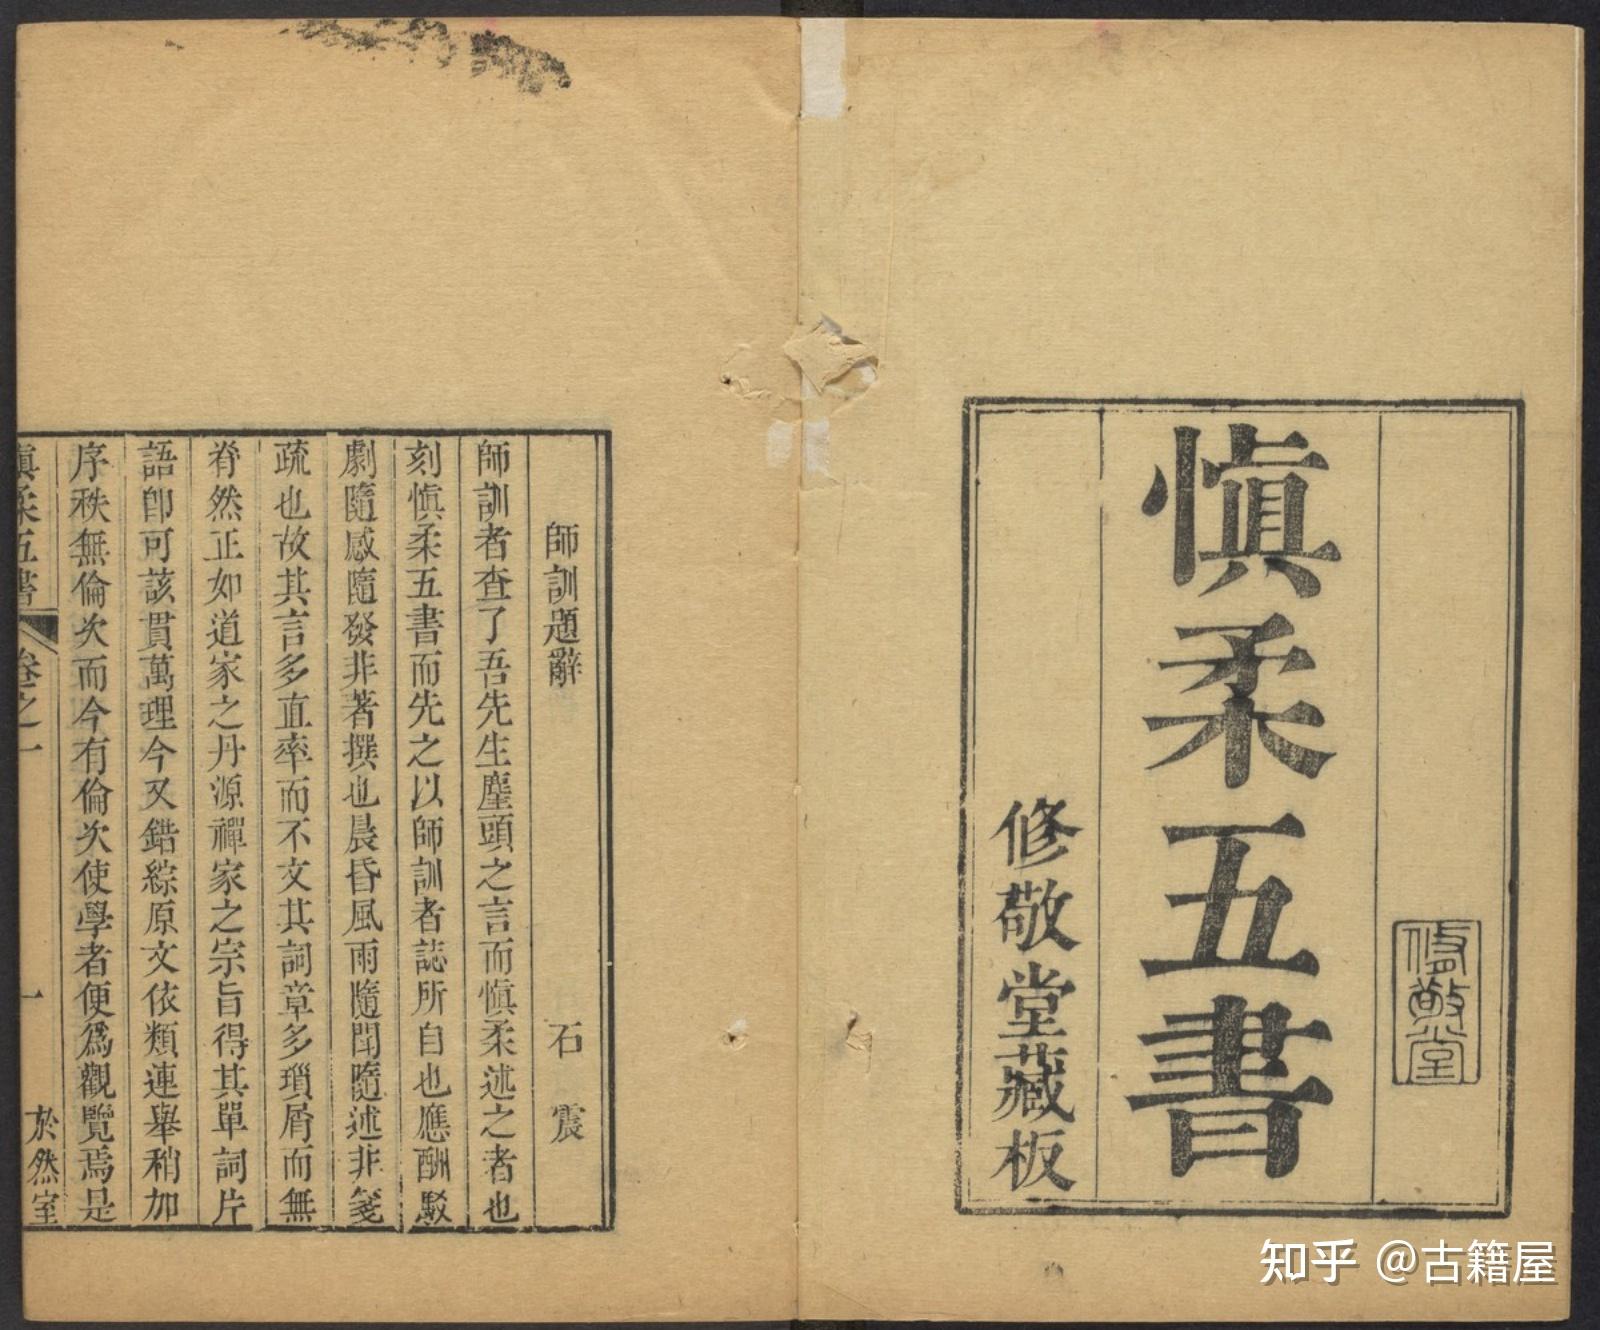 修敬堂
慎柔五書
修敬堂藏板
師訓題辭
石震
師訓者查了吾先生麈頭之言而慎柔述之者也
刻慎柔五書而先之以師訓者誌所自也應酬駁
劇隨感隨發非著撰也晨昏風雨隨聞隨述非箋
疏也故其言多直率而不文其詞章多瑣屑而無
脊然正如道家之丹源禪家之宗旨得其單詞片
語卽可該貫萬理今又錯綜原文依類連舉稍加
序秩無倫次而今有倫次使學者便爲觀覽焉是
慎柔五書
卷之一
一
於然室
知乎 @古籍屋